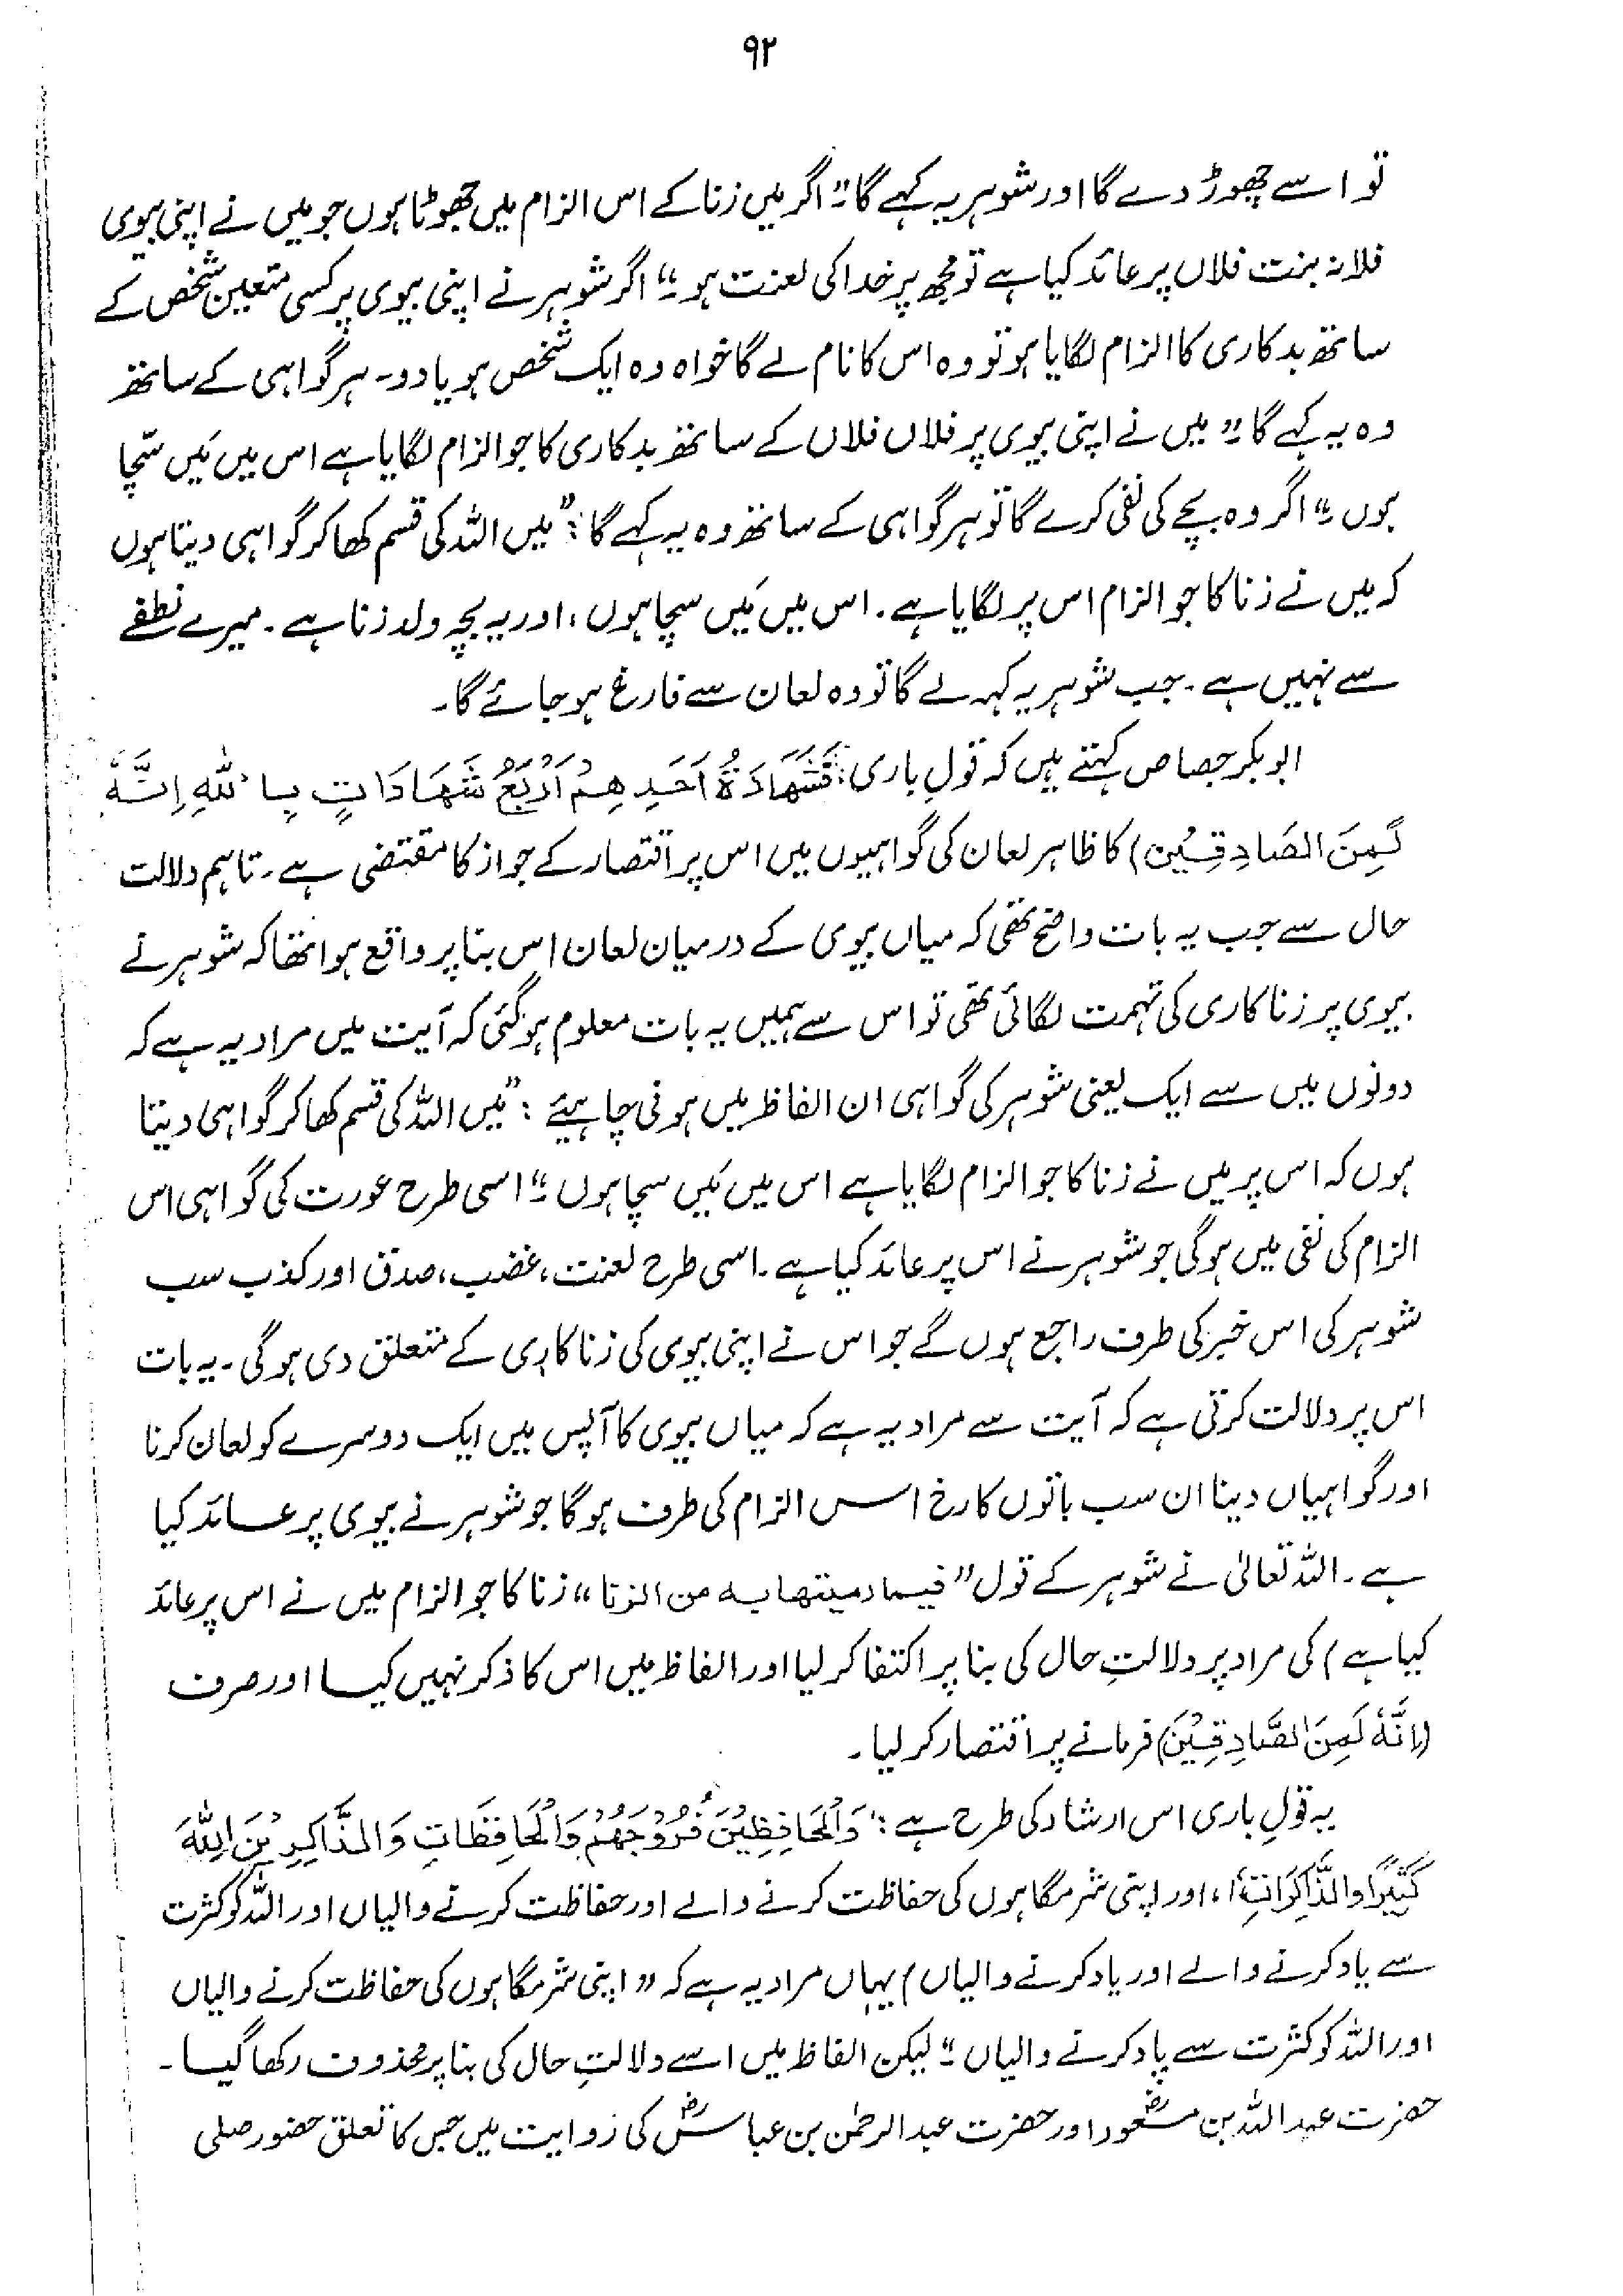 ۹۲
تو اسے چھوڑ دے گا اور شوہر یہ کہے گا:" اگر میں زنا کے اس الزام میں جھوٹا ہوں جو میں نے اپنی بیوی
فلانہ بنت فلاں پر عائد کیا ہے تو مجھ پر خدا کی لعنت ہو۔" اگر شوہر نے اپنی بیوی پر کسی متعین شخص کے
ساتھ بدکاری کا الزام لگایا ہو تو وہ اس کا نام لے گا خواہ وہ ایک شخص ہو یا دو۔ ہر گواہی کے ساتھ
وہ یہ کہے گا:" میں نے اپنی بیوی پر فلاں فلاں کے ساتھ بدکاری کا جو الزام لگایا ہے اس میں مَیں سچّا
ہوں۔" اگر وہ بچے کی نفی کرے گا تو ہر گواہی کے ساتھ وہ یہ کہے گا:" میں اللہ کی قسم کھا کر گواہی دیتا ہوں
کہ میں نے زنا کا جو الزام اس پر لگایا ہے۔ اس میں مَیں سچا ہوں، اور یہ بچہ ولد زنا ہے۔ میرے نطفے
سے نہیں ہے۔ جب شوہر یہ کہہ لے گا تو وہ لعان سے فارغ ہو جائے گا۔
ابوبکر جصاص کہتے ہیں کہ قولِ باری: فَشَهَادَةُ اَحَدِهِمْ اَرْبَعُ شَهَادَاتٍ بِاللهِ اِنَّهٗ
لَمِنَ الصَّادِقِيْن) کا ظاہر لعان کی گواہیوں میں اس پر اقتصار کے جواز کا مقتضی ہے۔ تاہم دلالت
حال سے جب یہ بات واضح تھی کہ میاں بیوی کے درمیان لعان اس بنا پر واقع ہوا تھا کہ شوہر نے
بیوی پر زنا کاری کی تہمت لگائی تھی تو اس سے ہمیں یہ بات معلوم ہو گئی کہ آیت میں مراد یہ ہے کہ
دونوں میں سے ایک یعنی شوہر کی گواہی ان الفاظ میں ہونی چاہیئے: "میں اللہ کی قسم کھا کر گواہی دیتا
ہوں کہ اس پر میں نے زنا کا جو الزام لگایا ہے اس میں مَیں سچا ہوں۔" اسی طرح عورت کی گواہی اس
الزام کی نفی میں ہوگی جو شوہر نے اس پر عائد کیا ہے۔ اسی طرح لعنت، غضب، صدق اور کذب سب
شوہر کی اس خبر کی طرف راجع ہوں گے جو اس نے اپنی بیوی کی زنا کاری کے متعلق دی ہوگی۔ یہ بات
اس پر دلالت کرتی ہے کہ آیت سے مراد یہ ہے کہ میاں بیوی کا آپس میں ایک دوسرے کو لعان کرنا
اور گواہیاں دینا ان سب باتوں کا رخ اس الزام کی طرف ہوگا جو شوہر نے بیوی پر عائد کیا
ہے۔ اللہ تعالیٰ نے شوہر کے قول "فیما رمیتها به من الزنا" زنا کا جو الزام میں نے اس پر عائد
کیا ہے) کی مراد پر دلالتِ حال کی بنا پر اکتفا کر لیا اور الفاظ میں اس کا ذکر نہیں کیا اور صرف
(اِنَّهٗ لَمِنَ الصَّادِقِيْنَ) فرمانے پر اقتصار کر لیا۔
یہ قولِ باری اس ارشاد کی طرح ہے: "وَالْحَافِظِيْنَ فُرُوْجَهُمْ وَالْحَافِظَاتِ وَالذَّاكِرِيْنَ اللهَ
كَثِيْرًا وَالذَّاكِرَاتِ، اور اپنی شرمگاہوں کی حفاظت کرنے والے اور حفاظت کرنے والیاں اور اللہ کو کثرت
سے یاد کرنے والے اور یاد کرنے والیاں) یہاں مراد یہ ہے کہ " اپنی شرمگاہوں کی حفاظت کرنے والیاں
اور اللہ کو کثرت سے یاد کرنے والیاں۔" لیکن الفاظ میں اسے دلالتِ حال کی بنا پر محذوف رکھا گیا۔
حضرت عبداللہ بن مسعودؓ اور حضرت عبدالرحمٰن بن عباسؓ کی روایت میں جس کا تعلق حضور صلی